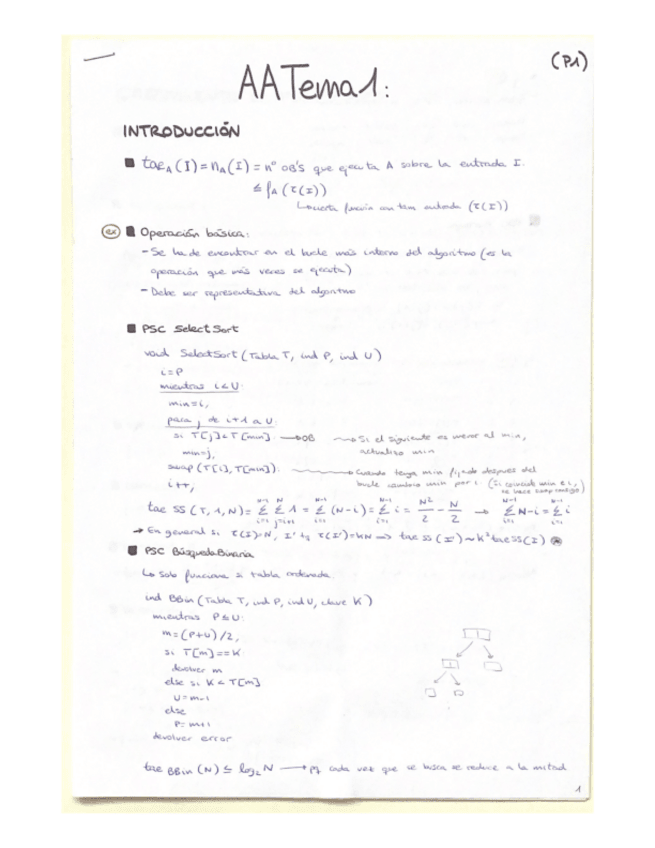 (P1)
AA Tema 1:
INTRODUCCIÓN
■ tae_A(I) = n_A(I) = nº OB'S que ejecuta A sobre la entrada I.
≤ f_A(τ(I))
↳ cierta función con tam entrada (τ(I))
(ex) ■ Operación básica:
- Se ha de encontrar en el bucle más interno del algoritmo (es la
operación que más veces se ejecuta)
- Debe ser representativa del algoritmo
■ PSC SelectSort
void SelectSort (Tabla T, ind P, ind U)
i=P
mientras i<U:
min=i;
para j de i+1 a U:
si T[j]<T[min] → OB → Si el siguiente es menor al min,
actualizo min
min=j;
swap (T[i], T[min]) → Cuando tenga min fijado después del
bucle cambio min por i. (Si coincide min e i,
se hace swap consigo)
i++;
tae SS (T, 1, N) = Σ_{i=1}^{N-1} Σ_{j=i+1}^{N} 1 = Σ_{i=1}^{N-1} (N-i) = Σ_{i=1}^{N-1} i = N²/2 - N/2 → Σ_{i=1}^{N-1} N-i = Σ_{i=1}^{N-1} i
→ En general si τ(I)=N, I' tq τ(I')=kN ⇒ tae ss (I') ~ k² tae SS(I)
■ PSC Búsqueda Binaria
↳ Solo funciona si tabla ordenada.
ind BBin (Tabla T, ind P, ind U, clave K)
mientras P≤U:
m=(P+U)/2;
si T[m]==K:
devolver m
else si K<T[m]
U=m-1
else
P=m+1
devolver error
tae BBin (N) ≤ log₂ N → pq cada vez que se busca se reduce a la mitad
1